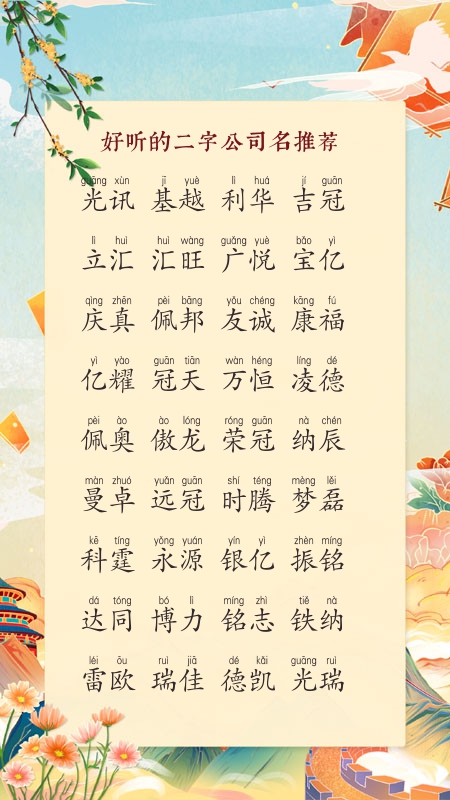 好听的二字公司名推荐
guāng xùn jī yuè lì huá jí guān
光讯 基越 利华 吉冠
lì huì huì wàng guǎng yuè bǎo yì
立汇 汇旺 广悦 宝亿
qìng zhēn pèi bāng yǒu chéng kāng fú
庆真 佩邦 友诚 康福
yì yào guān tiān wàn héng líng dé
亿耀 冠天 万恒 凌德
pèi ào ào lóng róng guān nà chén
佩奥 傲龙 荣冠 纳辰
màn zhuó yuǎn guān shí téng mèng lěi
曼卓 远冠 时腾 梦磊
kē tíng yǒng yuán yín yì zhèn míng
科霆 永源 银亿 振铭
dá tóng bó lì míng zhì tiě nà
达同 博力 铭志 铁纳
léi ōu ruì jiā dé kǎi guāng ruì
雷欧 瑞佳 德凯 光瑞